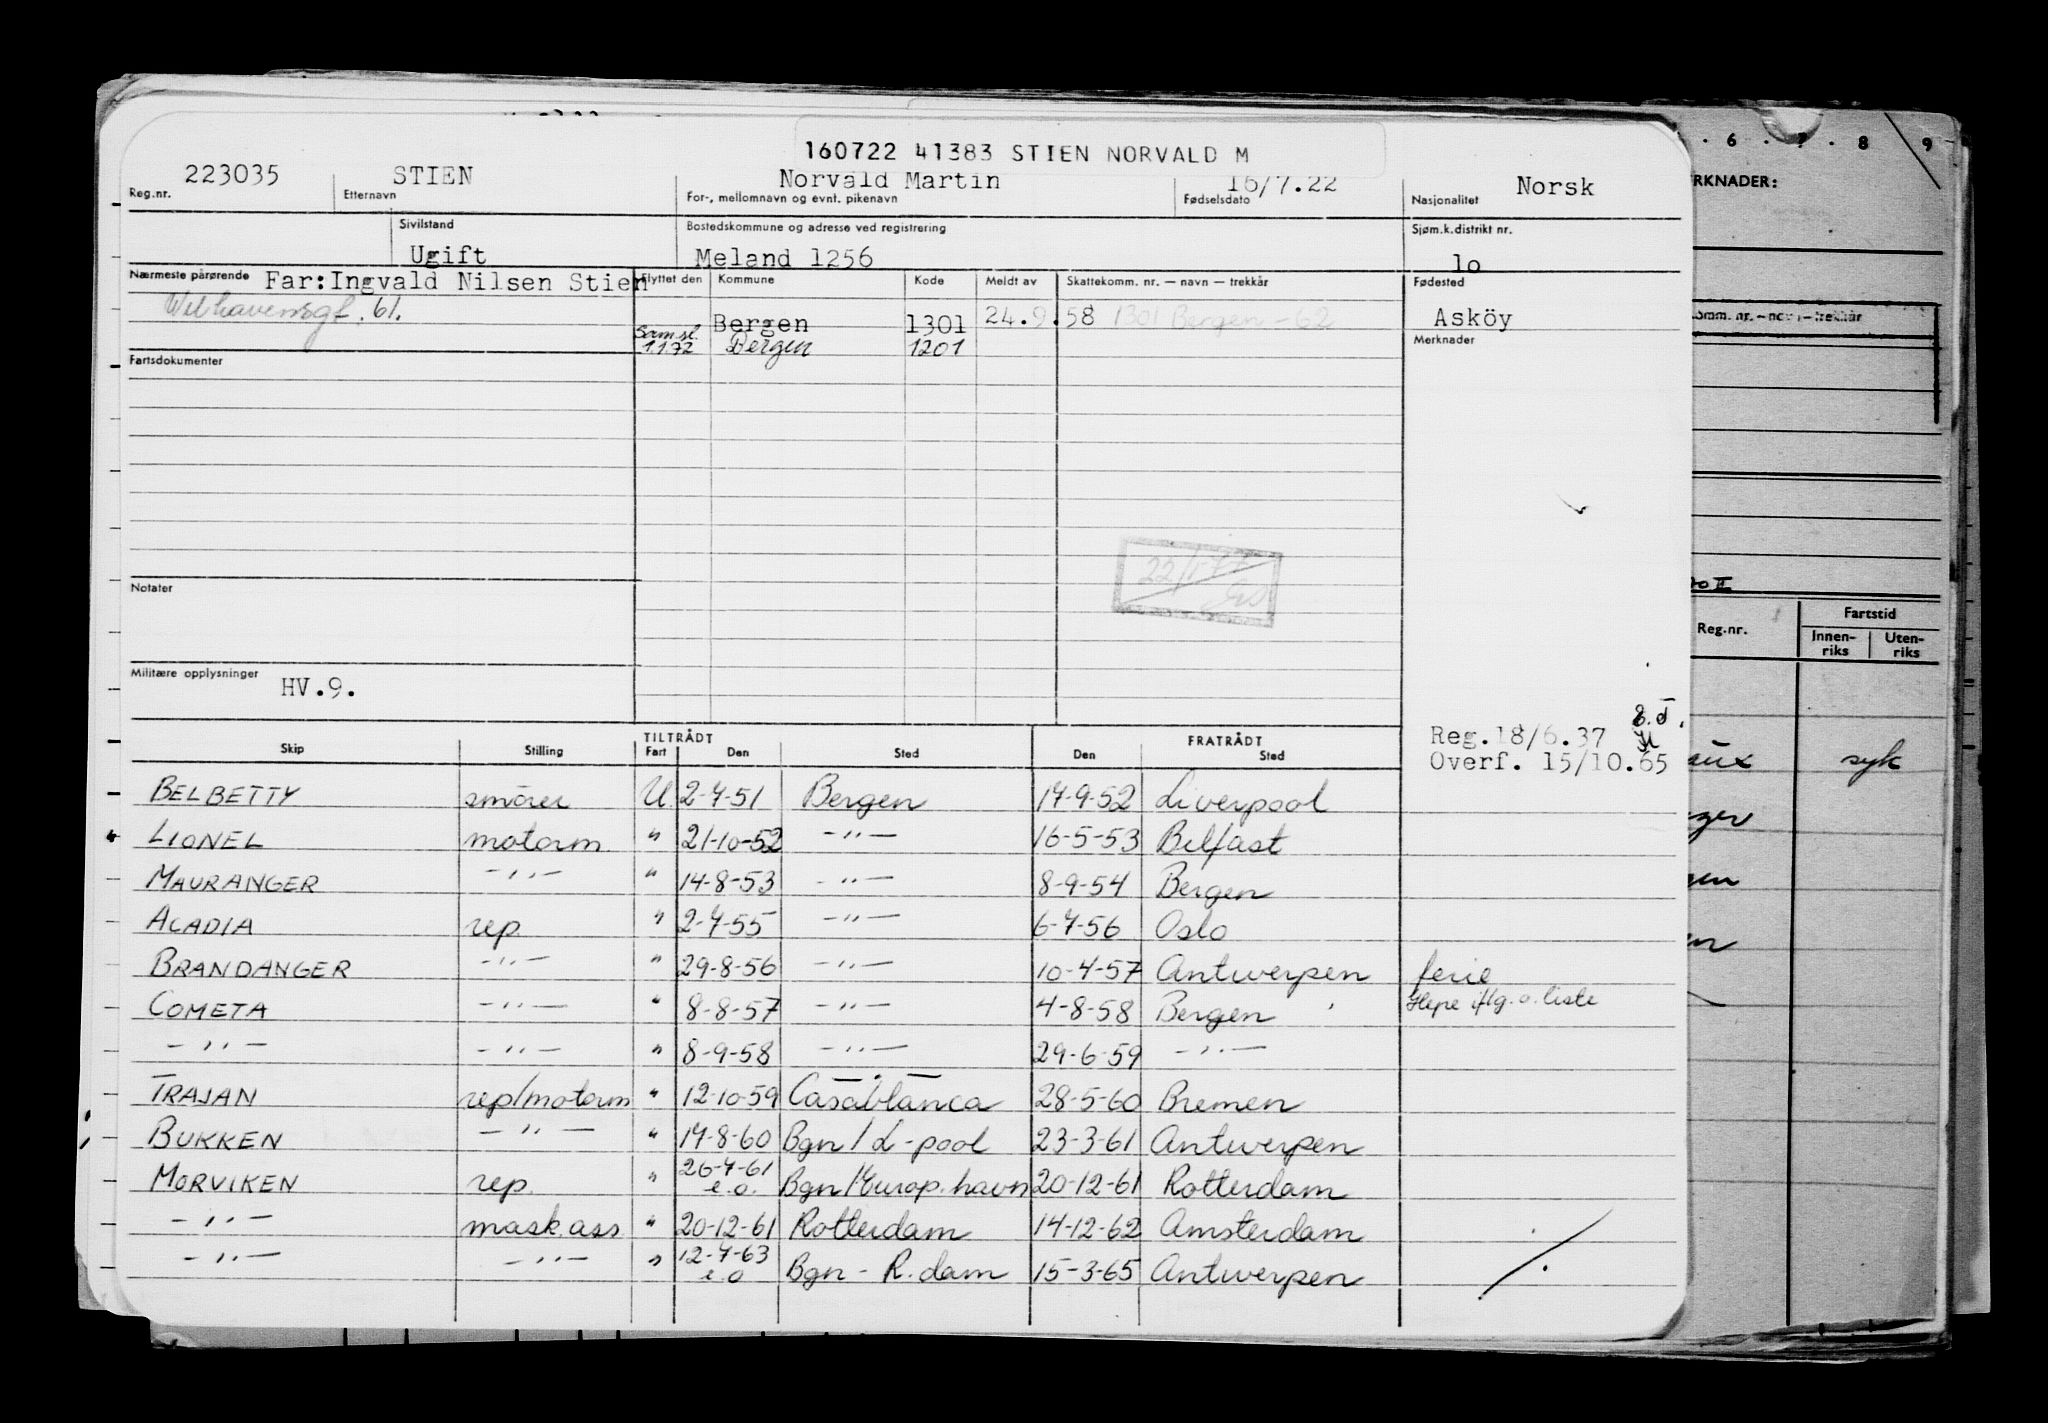 160722 41383 STIEN NORVALD M
223035 STIEN Norvald Martin 16/7.22 Norsk
Reg.nr. Etternavn For-, mellomnavn og evnt. pikenavn Fødselsdato Nasjonalitet
Sivilstand Bostedskommune og adresse ved registrering Sjøm.k.distrikt nr.
Ugift Meland 1256 lo
Nærmeste pårørende Far:Ingvald Nilsen Stien Flyttet den Kommune Kode Meldt av Skattekomm. nr. — navn — trekkår Fødested
61. Bergen 1301 24.9.58 1301 Bergen -62 Asköy
Sam.sl.
1.1.72 Bergen 1201 Merknader
Fartsdokumenter
22/
Notater
Militære opplysninger HV.9.
Reg.18/6.37
Overf. 15/10.65
TILTRÅDT FRATRÅDT
Skip Stilling Fart Den Sted Den Sted
BELBETTY smörer U. 2-7-51 Bergen 17-9-52 Liverpool
LIONEL motorm " 21-10-52 -"- 16-5-53 Belfast
MAURANGER -"- " 14-8-53 -"- 8-9-54 Bergen
ACADIA rep. " 2-7-55 -"- 6-7-56 Oslo
BRANDANGER -"- " 29-8-56 -"- 10-4-57 Antwerpen ferie
COMETA -"- " 8-8-57 -"- 4-8-58 Bergen Hepe iflg. o. liste
-"- -"- " 8-9-58 -"- 29-6-59 -"-
TRAJAN rep/motorm " 12-10-59 Casablanca 28-5-60 Bremen
BUKKEN -"- " 17-8-60 Bgn / L-pool 23-3-61 Antwerpen
MORVIKEN rep. " 26-7-61 e.o. Bgn/Europ. havn 20-12-61 Rotterdam
-"- mask.ass " 20-12-61 Rotterdam 14-12-62 Amsterdam
-"- -"- " 12-7-63 e.o Bgn - R.dam 15-3-65 Antwerpen
6 . 7 . 8 . 9
RKNADER:
omm. nr. — navn — trekkår
Reg.nr. Fartstid
Innen-riks Uten-riks
syk